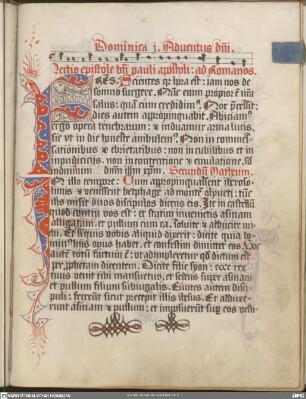 Dominica j. Adventus dni.
Lectio epistole bti pauli apostoli: ad Romanos.
Scientes qz hora est: iam nos de
somno surgere. Nunc enim propior e nra
salus: qua cum credidim9. Nox pcessit:
dies autem apropinquabit. Abiciam9
ergo opera tenebrarum: et induamur arma lucis.
sicut ut in die honeste ambulem9. Non in comes
sationibus et ebrietatibus: non in cubilibus et
inpudicicijs. non in contentione et emulatione. sed
induimini dnm ihm xpm. Secundu Matheum.
In illo tempore: Cum apropinquasset iheroso-
limis et venisset bethphage ad monte oliveti: tunc
ihs misit duos discipulos dicens eis. Ite in castellu
quod contra vos est: et statim invenietis asinam
alligatam. et pullum cum ea. solvite et adducite mi-
chi. Et siquis vobis aliquid dixerit: dicite quia do-
minus hijs opus habet. et confestim dimittet eos. Hoc
autem totum factum e: ut adimpleretur qd dictum est
per prophetam dicentem. Dicite filie syon: ecce rex
tuus venit tibi mansuetus. et sedens super asinam
et pullum filium subiugalis. Euntes autem disci-
puli: fecerut sicut precepit illis ihesus. Et adduxe-
runt asinam et pullum: et imposuerut sup eos vesti-